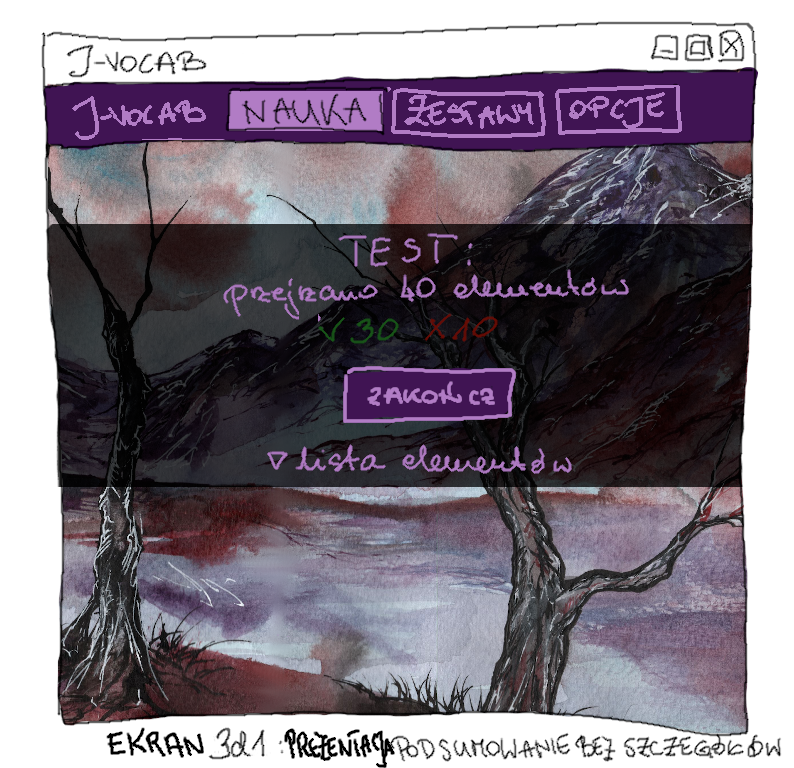 J-VOCAB
J-VOCAB NAUKA ZESTAWY OPCJE
TEST:
przejrzano 40 elementów
√ 30 X 10
ZAKOŃCZ
▽ lista elementów
EKRAN 3d1 : PREZENTACJA PODSUMOWANIE BEZ SZCZEGÓŁÓW